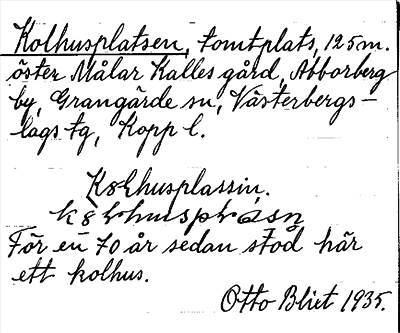 Kolhusplatsen, tomtplats, 125 m.
öster Målar Kalles gård, Abborberg
by, Grangärde sn, Västerbergs-
lags tg, Kopp l.
Kolhusplassin.
För en 70 år sedan stod här
ett kolhus.
Otto Blixt 1935.